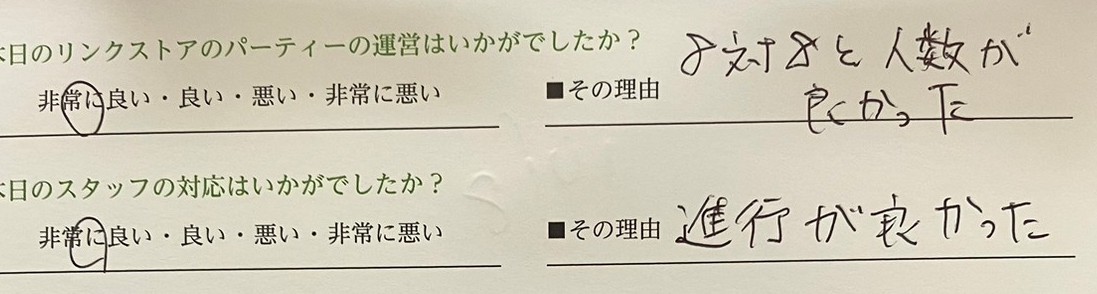 本日のリンクストアのパーティーの運営はいかがでしたか？
非常に良い・良い・悪い・非常に悪い
■その理由 8対8と人数が
良くかった
本日のスタッフの対応はいかがでしたか？
非常に良い・良い・悪い・非常に悪い
■その理由 進行が良かった